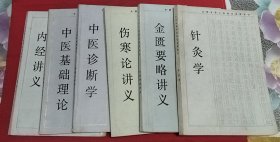 内经讲义
中医基础理论
中医诊断学
伤寒论讲义
金匮要略讲义
针灸学